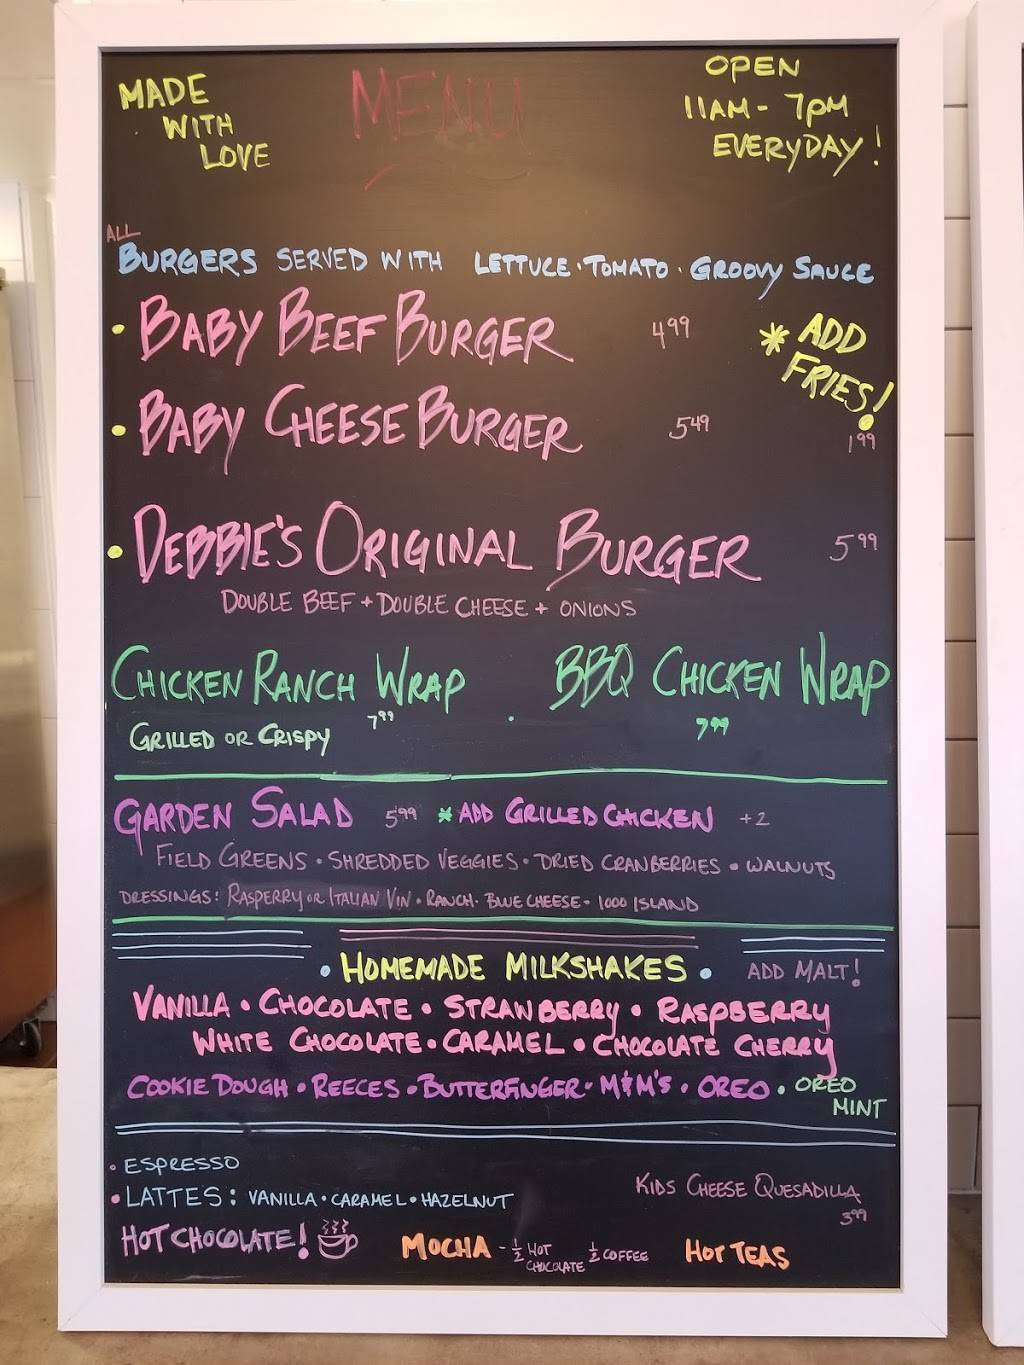 MADE
WITH
LOVE
MENU
OPEN
11AM - 7PM
EVERYDAY!
ALL
BURGERS SERVED WITH LETTUCE · TOMATO · GROOVY SAUCE
• BABY BEEF BURGER 4.99
* ADD
FRIES!
1.99
• BABY CHEESE BURGER 5.49
• DEBBIE'S ORIGINAL BURGER 5.99
DOUBLE BEEF + DOUBLE CHEESE + ONIONS
CHICKEN RANCH WRAP
7.99
GRILLED OR CRISPY
BBQ CHICKEN WRAP
7.99
GARDEN SALAD 5.99 * ADD GRILLED CHICKEN +2
FIELD GREENS · SHREDDED VEGGIES · DRIED CRANBERRIES · WALNUTS
DRESSINGS: RASPERRY OR ITALIAN VIN · RANCH · BLUE CHEESE · 1000 ISLAND
• HOMEMADE MILKSHAKES • ADD MALT!
VANILLA · CHOCOLATE · STRAWBERRY · RASPBERRY
WHITE CHOCOLATE · CARAMEL · CHOCOLATE CHERRY
COOKIE DOUGH · REECES · BUTTERFINGER · M&M'S · OREO · OREO
MINT
• ESPRESSO
• LATTES: VANILLA · CARAMEL · HAZELNUT
KIDS CHEESE QUESADILLA
3.99
HOT CHOCOLATE!
MOCHA - ½ HOT
CHOCOLATE ½ COFFEE
HOT TEAS